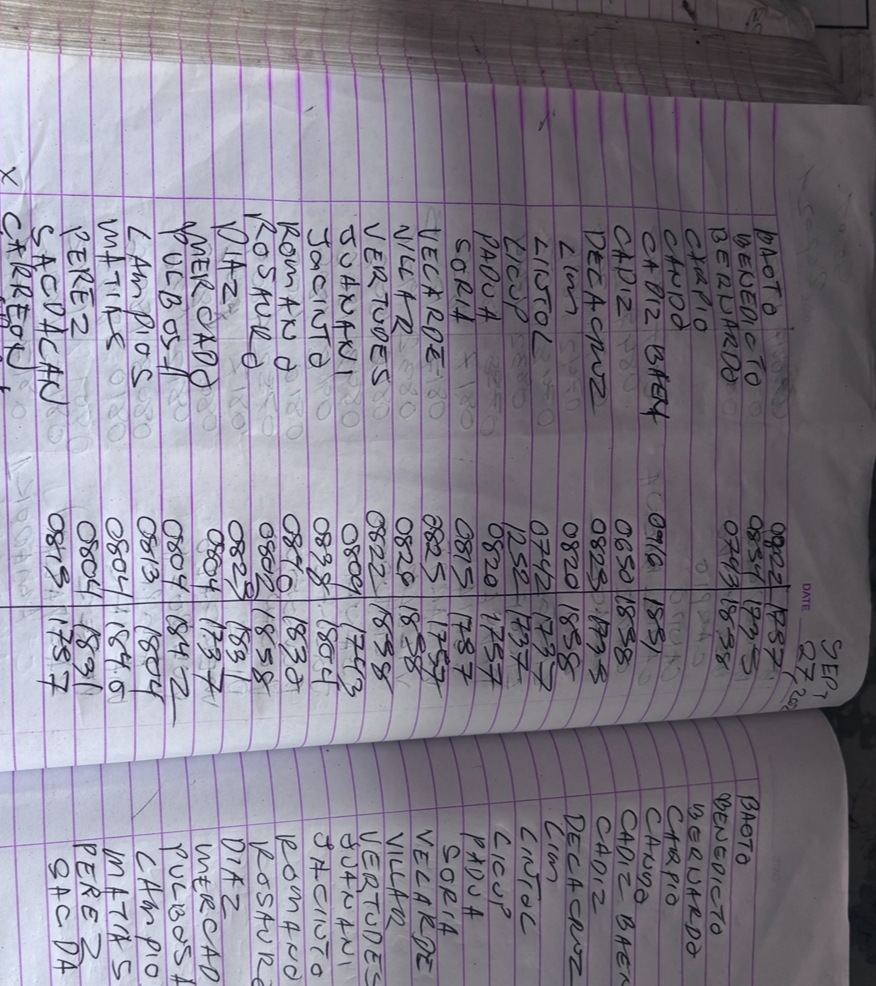 DATE SEPT 27,
BAOTO 0922 1757
BENEDICTO 0854 1735
BERNARDO 0743 1838
CARPIO
CANDO
CADIZ BAEN 0916 1831
CADIZ 0650 1858
DELACRUZ 0825 1738
LIM 0820 1858
LINTOL 0742 1737
LICUP 1252 1737
PADUA 0820 1757
SORIA 0815 1757
VELARDE 0825 1757
VILLAR 0826 1858
VERTUDES 0822 1858
JUANANI 0809 1743
JACINTO 0838 1804
ROMANO 0840 1830
ROSAURO 0803 1858
DIAZ 0823 1831
MERCADO 0804 1737
PULBOSA 0804 1842
LAMPIOS 0813 1804
MATIAS 0804 1840
PEREZ 0804 1831
SACDACAN 0813 1757
X CARREON
BAOTO
BENEDICTO
BERNARDO
CARPIO
CANDO
CADIZ BAEN
CADIZ
DELACRUZ
LIM
LINTOL
LICUP
PADUA
SORIA
VELARDE
VILLAR
VERTUDES
JUANANI
JACINTO
ROMANO
ROSAURO
DIAZ
MERCAD
PULBOSA
LAMPIO
MATIAS
PEREZ
SACDA